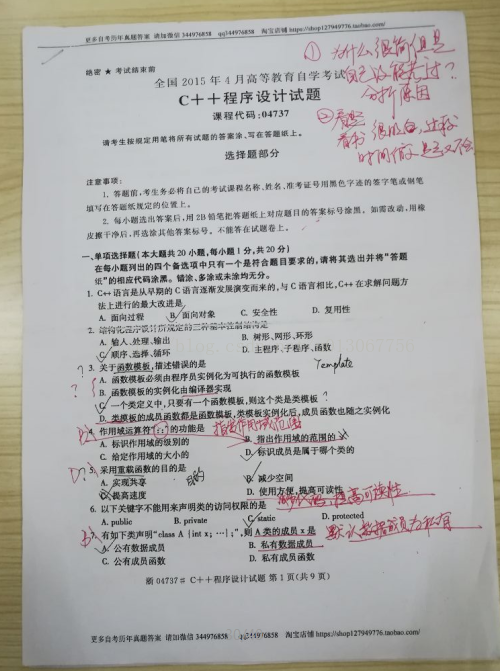 更多自考历年真题答案 请加微信 344976858 qq344976858 淘宝店铺 https://shop127949776.taobao.com/
绝密 ★ 考试结束前
全国 2015 年 4 月高等教育自学考试
C++程序设计试题
课程代码:04737
① 为什么很简单但是
分析原因
② 看题
时间做
请考生按规定用笔将所有试题的答案涂、写在答题纸上。
选择题部分
注意事项:
1. 答题前,考生务必将自己的考试课程名称、姓名、准考证号用黑色字迹的签字笔或钢笔
填写在答题纸规定的位置上。
2. 每小题选出答案后,用 2B 铅笔把答题纸上对应题目的答案标号涂黑。如需改动,用橡
皮擦干净后,再选涂其他答案标号。不能答在试题卷上。
一、单项选择题(本大题共 20 小题,每小题 1 分,共 20 分)
在每小题列出的四个备选项中只有一个是符合题目要求的,请将其选出并将“答题
纸”的相应代码涂黑。错涂、多涂或未涂均无分。
1. C++语言是从早期的 C 语言逐渐发展演变而来的,与 C 语言相比,C++在求解问题方
法上进行的最大改进是
A. 面向过程 B. 面向对象 C. 安全性 D. 复用性
2. 结构化程序设计所规定的三种基本控制结构是
A. 输入、处理、输出 B. 树形、网形、环形
C. 顺序、选择、循环 D. 主程序、子程序、函数
? 3. 关于函数模板,描述错误的是 Template
A. 函数模板必须由程序员实例化为可执行的函数模板
B. 函数模板的实例化由编译器实现
C. 一个类定义中,只要有一个函数模板,则这个类是类模板 ?
D. 类模板的成员函数都是函数模板,类模板实例化后,成员函数也随之实例化
4. 作用域运算符“::”的功能是 指出作用域范围
A. 标识作用域的级别的 B. 指出作用域的范围的
C. 给定作用域的大小的 D. 标识成员是属于哪个类的
D ? 5. 采用重载函数的目的是 目的
A. 实现共享 B. 减少空间
C. 提高速度 D. 使用方便,提高可读性
提高可读性
6. 以下关键字不能用来声明类的访问权限的是
A. public B. private C. static D. protected
7. 有如下类声明“class A { int x; …};”,则 A 类的成员 x 是 默认数据成员为私有
A. 公有数据成员 B. 私有数据成员
C. 公有成员函数 D. 私有成员函数
浙 04737# C++程序设计试题 第 1 页(共 9 页)
更多自考历年真题答案 请加微信 344976858 qq344976858 淘宝店铺 https://shop127949776.taobao.com/